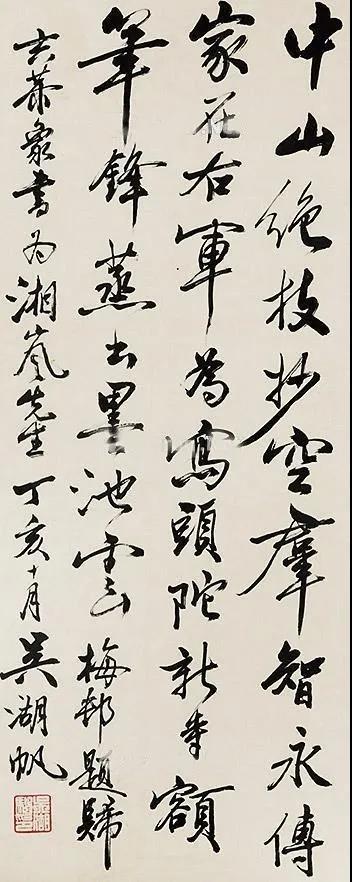 中山絕技妙空羣智永傳
家在右軍為寫頭陀新寺額
筆鋒蒸出墨池雲 梅邨題歸
玄恭象書為湘嵐先生 丁亥十月 吳湖帆